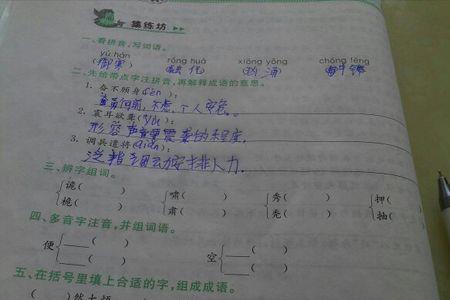 集练坊
一、看拼音,写词语。
yù hán róng huà xiōng yǒng chóng léng
(御寒) (融化) (汹涌) ( )
二、先给带点字注拼音,再解释成语的意思。
1. 奋不顾身( ):
勇敢向前,不虑个人安危。
2. 震耳欲聋( ):
形容声音 震 的程度。
3. 调兵遣将(qiǎn):
泛指调动安排人力。
三、辨字组词。
诡( ) 啸( ) 秀( ) 押(
桅( ) 肃( ) 秃( ) 抽(
四、多音字注音,并组词语。
便 ( ) 空 ( )
( ) ( )
五、在括号里填上合适的字,组成成语。